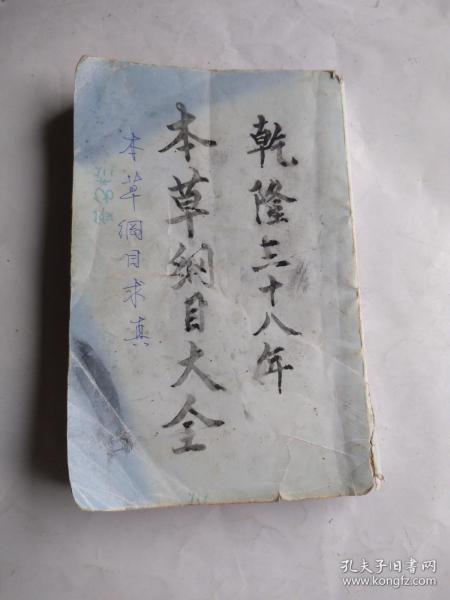 乾隆三十八年
本草網目大全
本草網目求真
孔夫子旧书网
www.kongfz.com